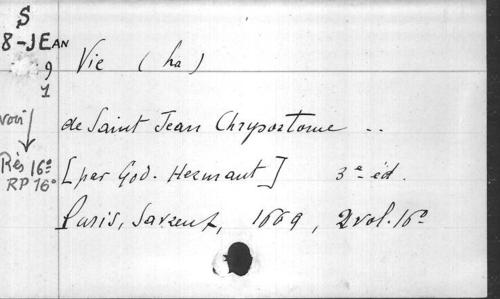 S
8-JEAN
9
1
Vie (ha)
voir
de Saint Jean Chrysostome ..
Rés 16°
RP 16°
[par God. Hermant] 3e éd.
Paris, Savreux, 1669, 2 vol. 16°